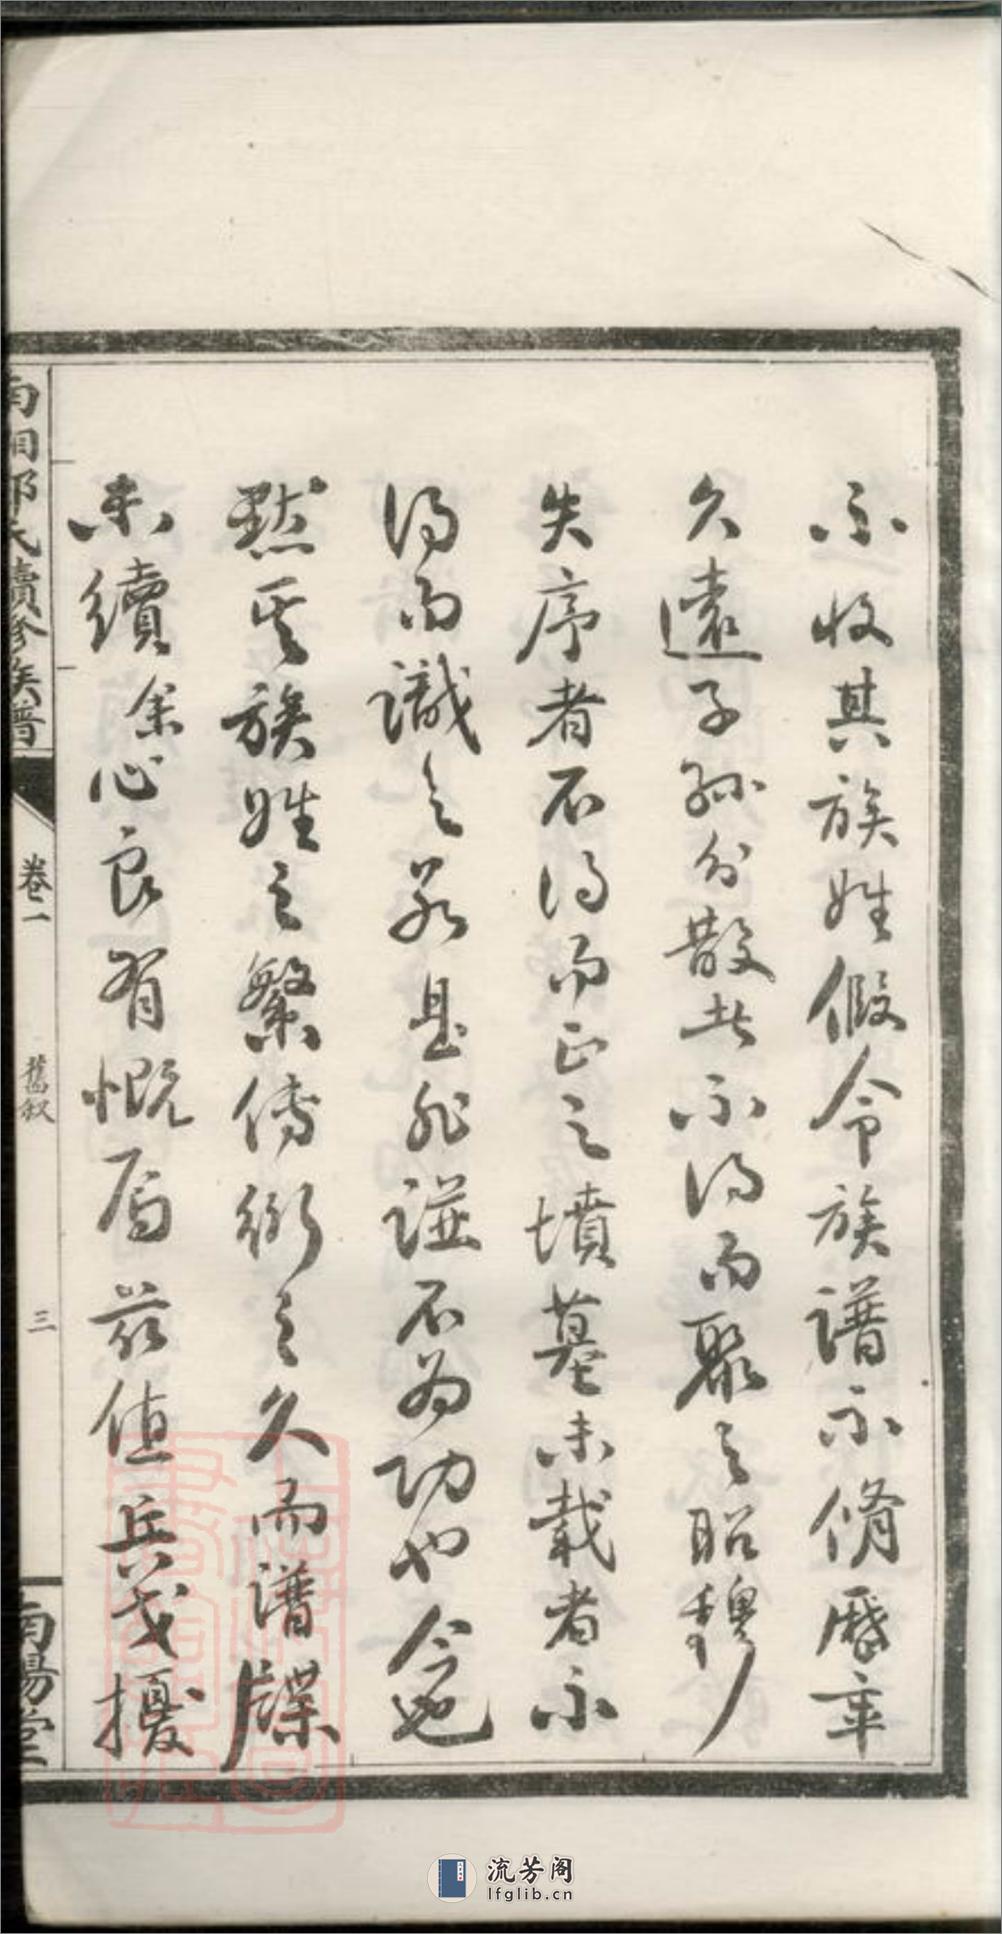 不收其族姓假令族譜不脩歷年
久遠子孫分散者不得而聚之昭穆
失序者不得而正之墳墓未載者不
得而識之若是非譜不為功也今
其族姓之繁傳衍之久而譜牒
未續余心良有慨焉茲值兵戈擾
氏續修族譜
卷一
舊叙
三
南陽堂
流芳阁
lfglib.cn